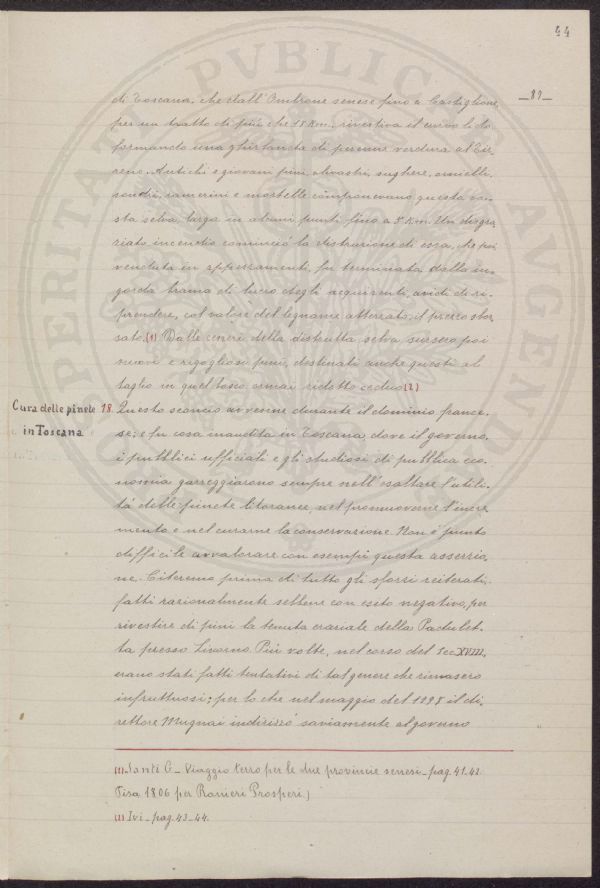 44
_81_
di Toscana, che dall'Ombrone senese fino a Castiglione,
per un tratto di più che 18 Km., rivestiva il curvo lido
formando una ghirlanda di perenne verdura al Tir,
reno. Antichi e giovani pini, olivastri, sughere, ornielli,
sondri, ramerini e mortelle componevano questa va,
sta selva, larga in alcuni punti fino a 5 Km. Un disgra,
ziato incendio cominciò la distruzione di essa, che poi
venduta in appezzamenti, fu terminata dalla in,
gorda brama di lucro degli acquirenti, avidi di ri,
prendere, col valore del legname atterrato, il prezzo sbor,
sato.(1) Dalle ceneri della distrutta selva sursero poi
nuovi e rigogliosi pini, destinati anche questi al
taglio in quel bosco ormai ridotto ceduo(2)
Cura delle pinete
in Toscana
18. Questo sconcio avvenne durante il dominio france,
se; e fu cosa inaudita in Toscana, dove il governo,
i pubblici ufficiali e gli studiosi di pubblica eco,
nomia gareggiarono sempre nell'esaltare l'utili,
tà delle pinete litoranee, nel promuoverne l'incre,
mento e nel curarne la conservazione. Non è punto
difficile avvalorare con esempi questa asserzio,
ne. Citeremo prima di tutto gli sforzi reiterati,
fatti razionalmente sebbene con esito negativo, per
rivestire di pini la tenuta erariale della Padulet,
ta presso Livorno. Più volte, nel corso del Sec XVIII,
erano stati fatti tentativi di tal genere che rimasero
infruttuosi; per lo che nel maggio del 1798 il di,
rettore Mugnai indirizzò saviamente al governo
(1)_Santi G_ Viaggio terzo per le due provincie senesi_pag. 41-42.
Pisa 1806 per Ranieri Prosperi.)
(2) Ivi_pag. 43_44.
PVBLICAE
AVGENDAE
PROSPERITATI